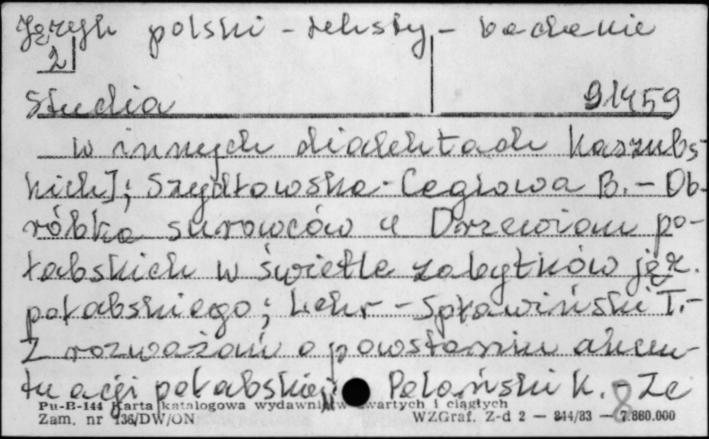 Język polski - teksty - badanie
2
Studia 91459
w innych dialektach kaszubs-
kich]; Szydłowska-Ceglowa B. - Ob-
róbka surowców u Drzewian po-
łabskich w świetle zabytków jęz.
połabskiego; Lehr-Spławiński T. -
Z rozważań o powstaniu akcen-
tuacji połabskiej; Polański K. - Ze
Pu-B-144 Karta katalogowa wydawnictw zwartych i ciągłych
Zam. nr 136/DW/ON WZGraf. Z-d 2 — 844/83 — 7.860.000
8